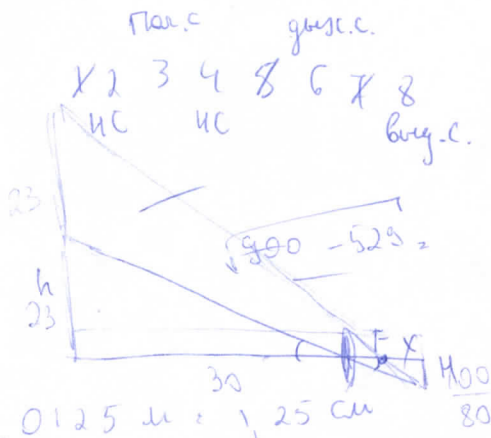 Пол.с дых.с.
X 2 3 4 8 6 7 8
НС НС выд.с.
23
√900 - 529 =
h
23
F X
30
400
80
0125 м = 1,25 см